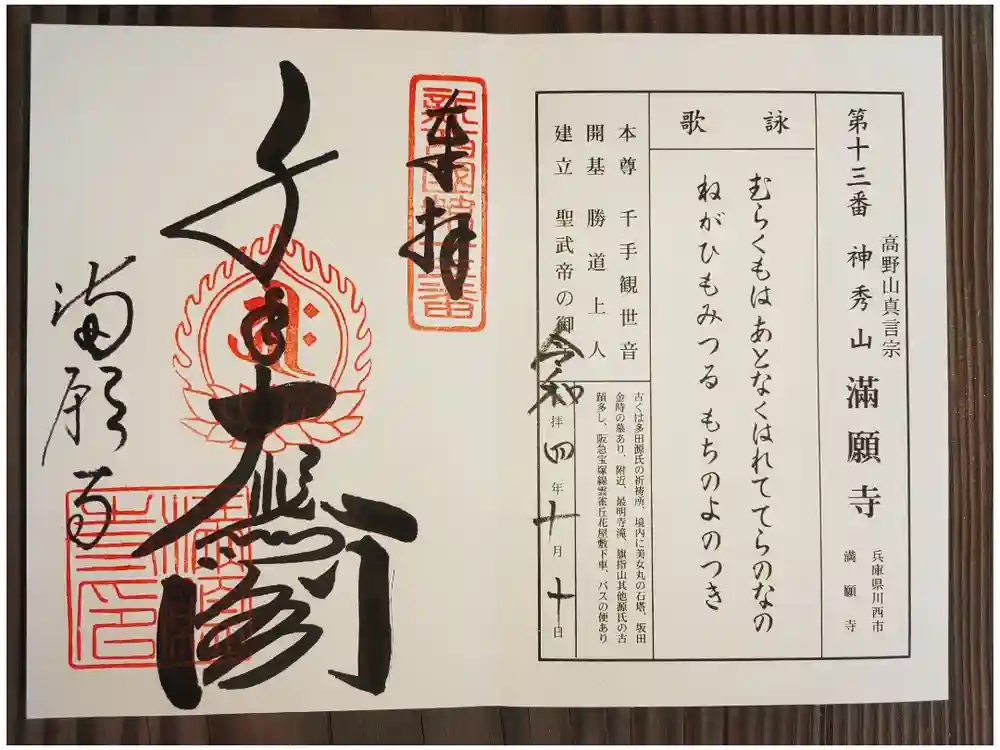 高野山真言宗
第十三番 神秀山 滿願寺
兵庫県川西市
滿願寺
詠歌
むらくもは あとなくはれて てらのなの
ねがひもみつる もちのよのつき
本尊 千手観世音
開基 勝道上人
建立 聖武帝の御
古くは多田源氏の祈祷所、境内に美女丸の石塔、坂田
金時の墓あり、附近、最明寺滝、旗指山其他源氏の古
蹟多し、阪急宝塚線雲雀丘花屋敷下車、バスの便あり
令和四年十月十日
拝
奉拝
千手大悲閣
満願寺